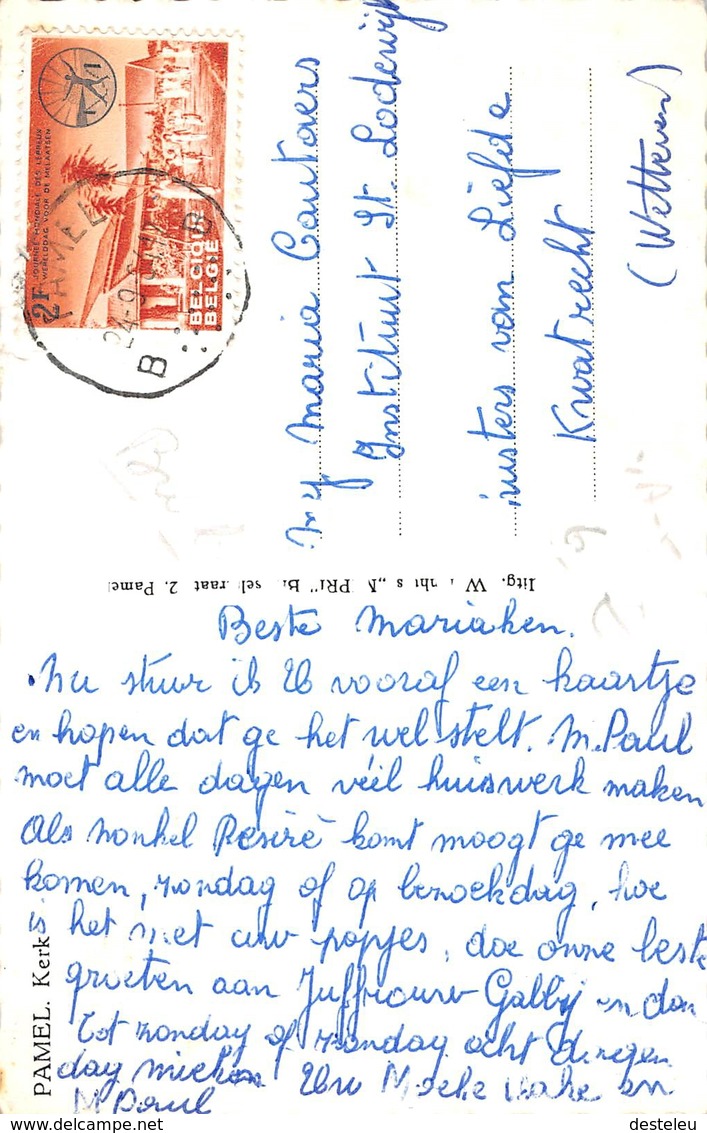 JOURNÉE MONDIALE DES LÉPREUX
WERELDDAG VOOR DE MELAATSEN
2F
BELGIQUE
BELGIË
PAMEL
24-9
B B
Mej Maria Cautaers
Instituut St. Lodewijk
zusters van Liefde
Kwatrecht
(Wetteren)
Uitg. "PRI" 2. Pamel
Beste Mariaken.
Nu stuur ik U vooraf een kaartje
en hopen dat ge het wel stelt. M. Paul
moet alle dagen véél huiswerk maken
Als nonkel Desiré komt moogt ge mee
komen, zondag of op bezoekdag, hoe
is het met uw popjes, doe onze beste
groeten aan Juffrouw Gabby en dan
Tot zondag of zondag acht dagen
dag Uw Moeke Vake en
M Paul
PAMEL. Kerk
delcampe.net
desteleu